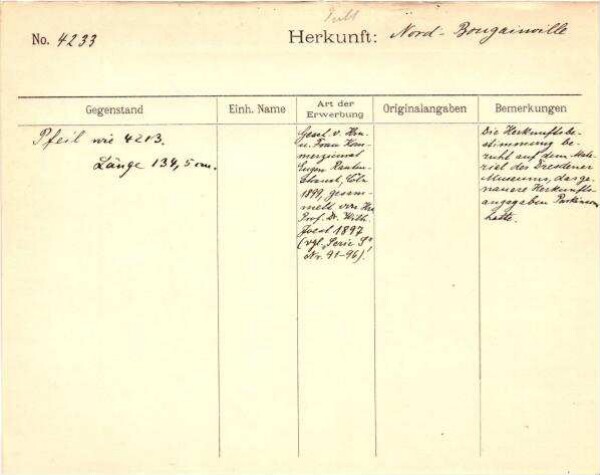 No. 4233
Herkunft: Nord-Bougainville
Gegenstand
Einh. Name
Art der
Erwerbung
Originalangaben
Bemerkungen
Pfeil wie 4213.
Länge 134,5 cm.
Gesch. v. Hrn
u. Frau Kom-
merzienrat
Eugen Rauten-
strauch, Cöln
1899, gesam-
melt von Hrn
Prof. Dr. Wilh.
Joest 1897
(vgl. Serie
Nr. 91-96).
Die Herkunftsbe-
stimmung be-
ruht auf dem Mate-
rial des Dresdener
Museums, das ge-
nauere Herkunfts-
angaben Parkinson
hatte.